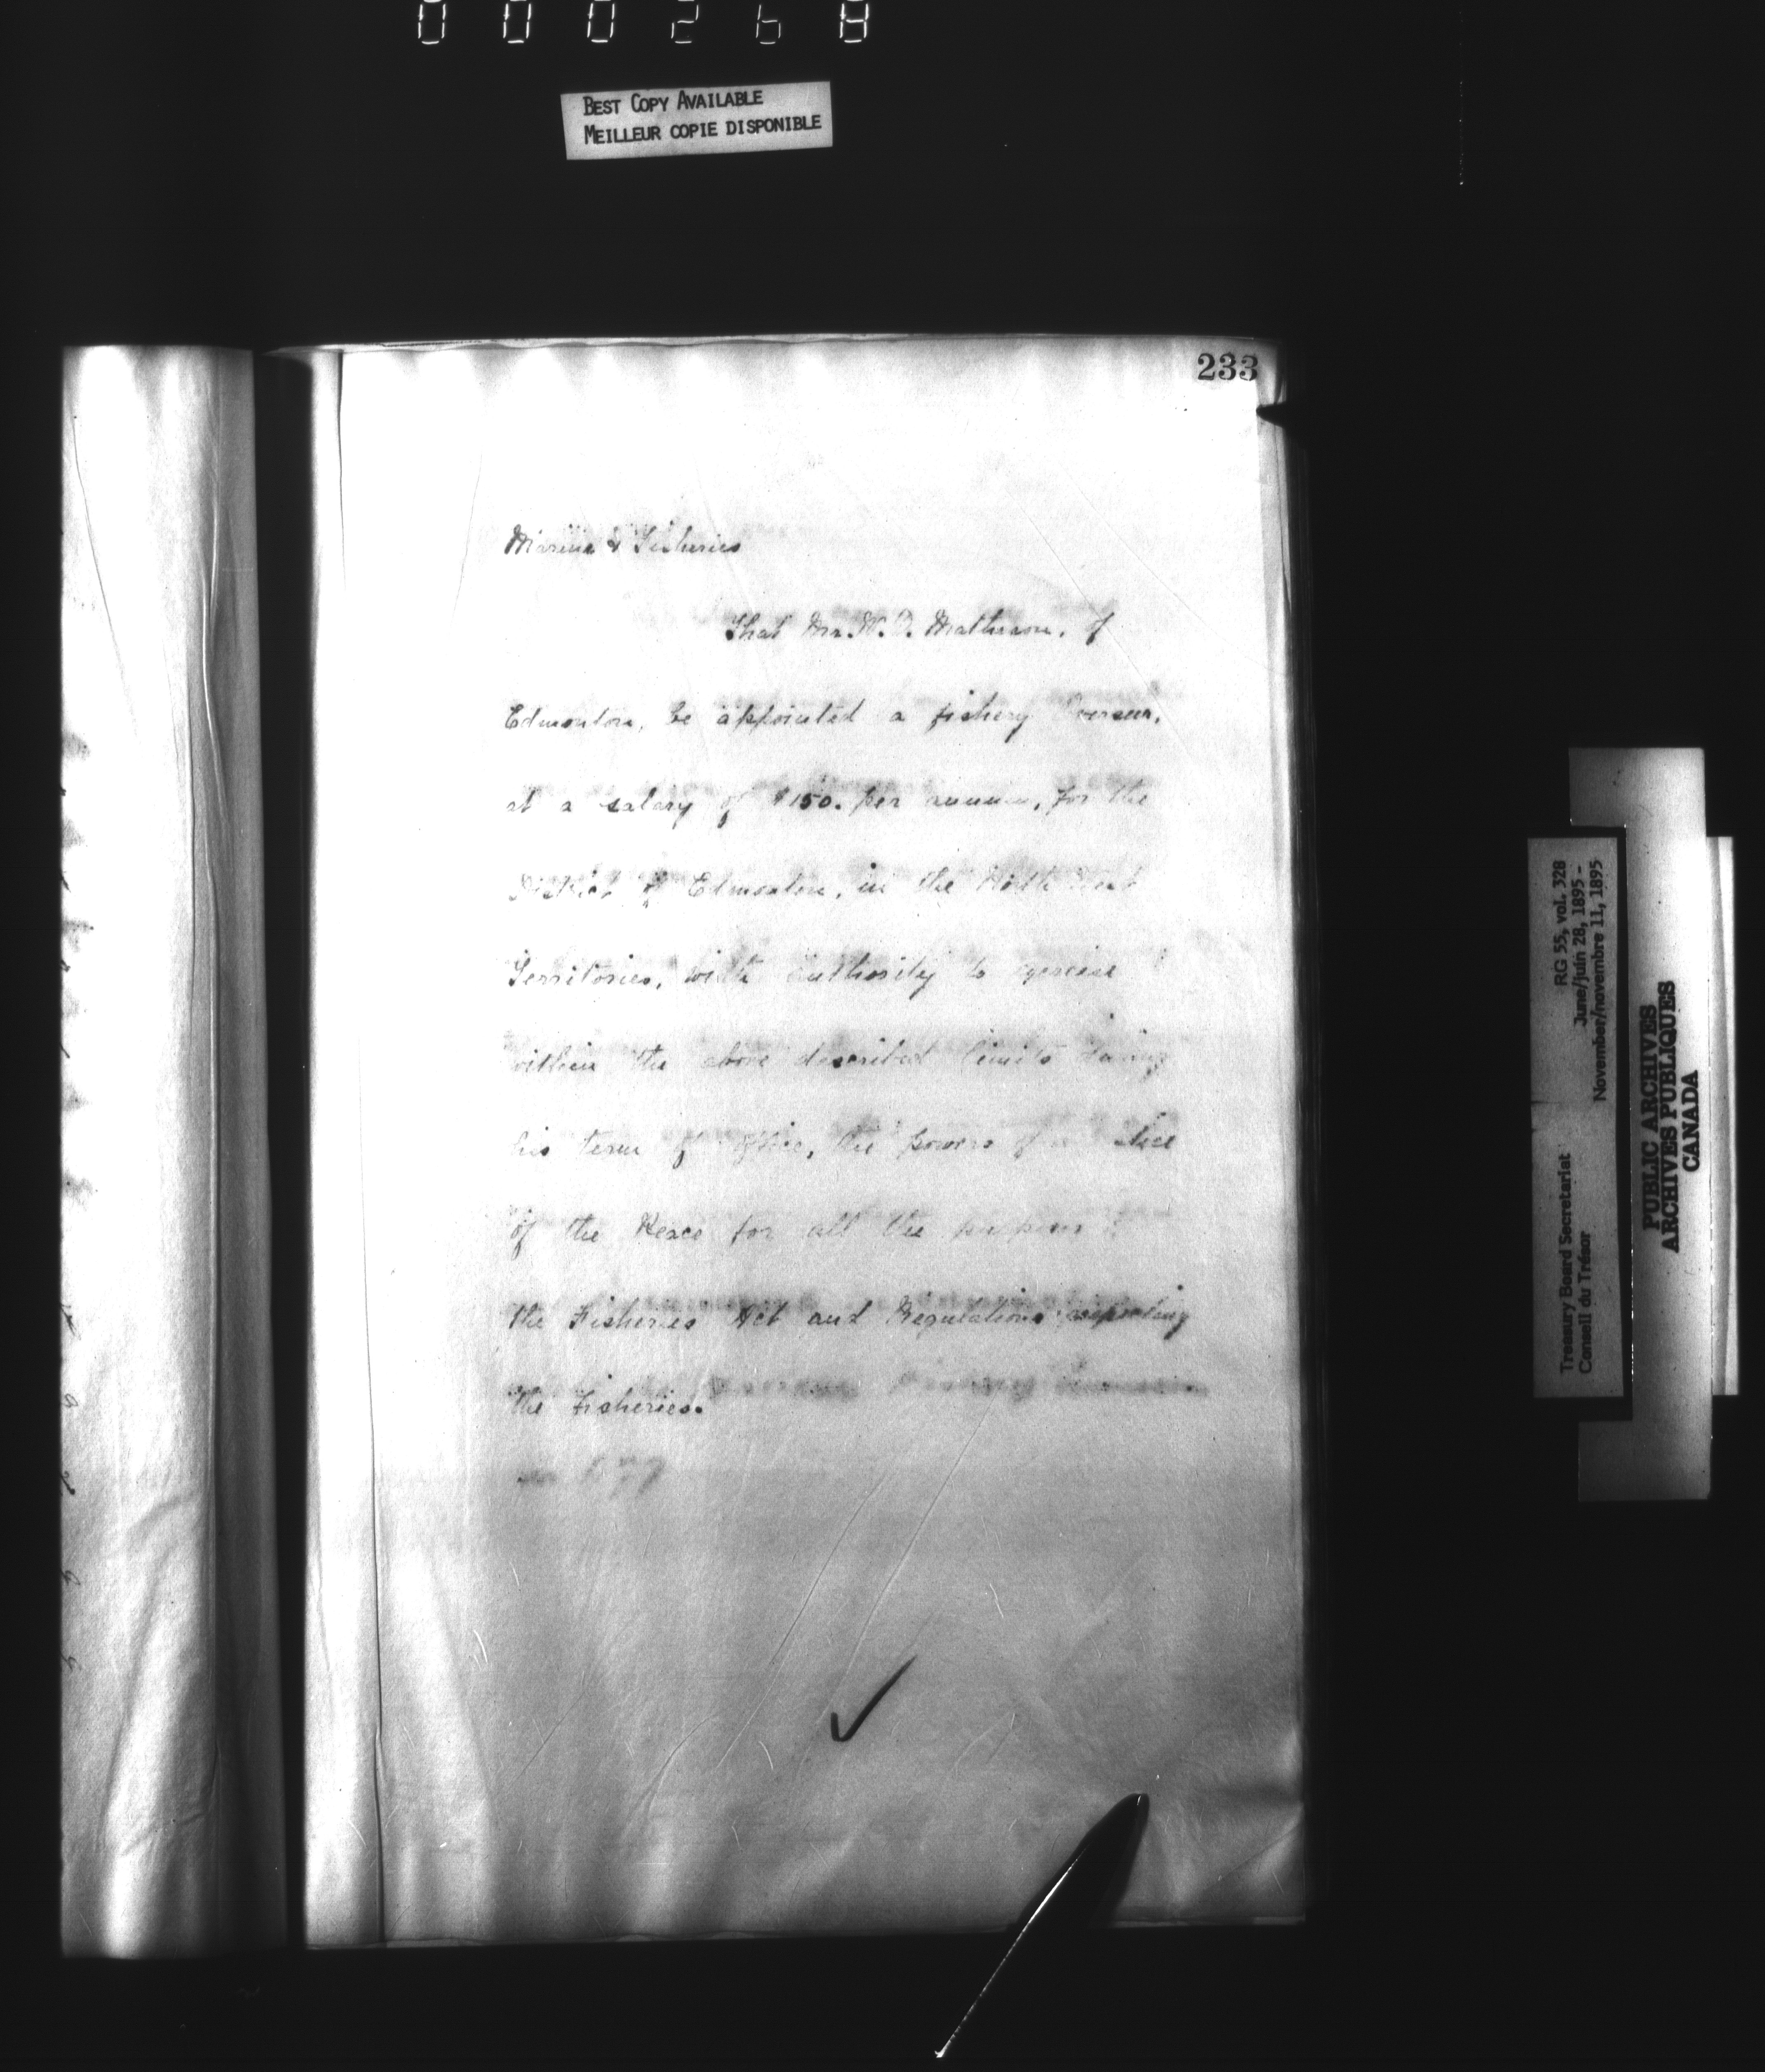 000268
BEST COPY AVAILABLE
MEILLEUR COPIE DISPONIBLE
233
Marine & Fisheries
That Mr. Matheson, of
Edmonton, be appointed a fishery
at a salary of $150. per annum, for the
District of Edmonton, in the North West
Territories, with authority to exercise
within the above described limits during
his term of office, the powers of
of the Peace for all the purposes
the Fisheries Act and Regulations respecting
the Fisheries.
RG 55, vol. 328
June/juin 28, 1895 -
November/novembre 11, 1895
Treasury Board Secretariat
Conseil du Trésor
PUBLIC ARCHIVES
ARCHIVES PUBLIQUES
CANADA